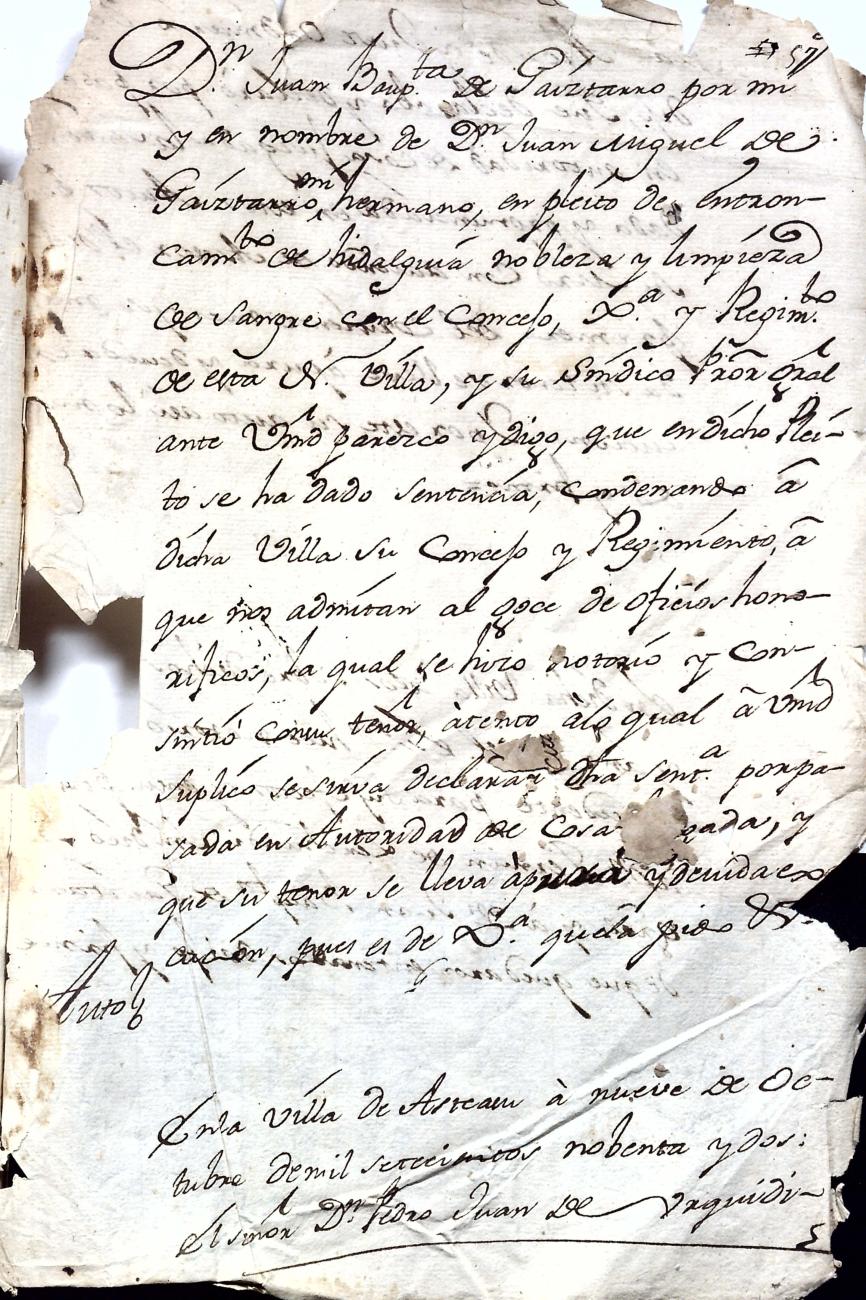 57
Dn. Juan Baup.ta de Gaiztarro por mi
y en nombre de Dn. Juan Miguel de
Gaiztarro mi hermano, en pleito de entron-
cam.to de hidalguia nobleza y limpieza
de sangre con el Concejo, Xa. y Regim.to
de esta N. Villa, y su Síndico Pror. gral
ante Vmd parezco y digo, que en dicho Plei-
to se ha dado sentencia, condenando â
dicha Villa su Concejo y Regimiento, â
que nos admitan al goce de oficios hono-
rificos, la qual se hizo notorio y con-
sintió tenor, àtento àlo qual â Vmd
suplico se sirva declarar dha sent.a por pa-
sada en Autoridad de Cosa zgada, y
que su tenor se lleva à pura y devida ex
cucion, pues es de Xa. que la pido &.
Auto
En la villa de Asteasu à nueve de Oc-
tubre de mil setecientos nobenta y dos:
El señor Dn. Pedro Juan de Urquidi-